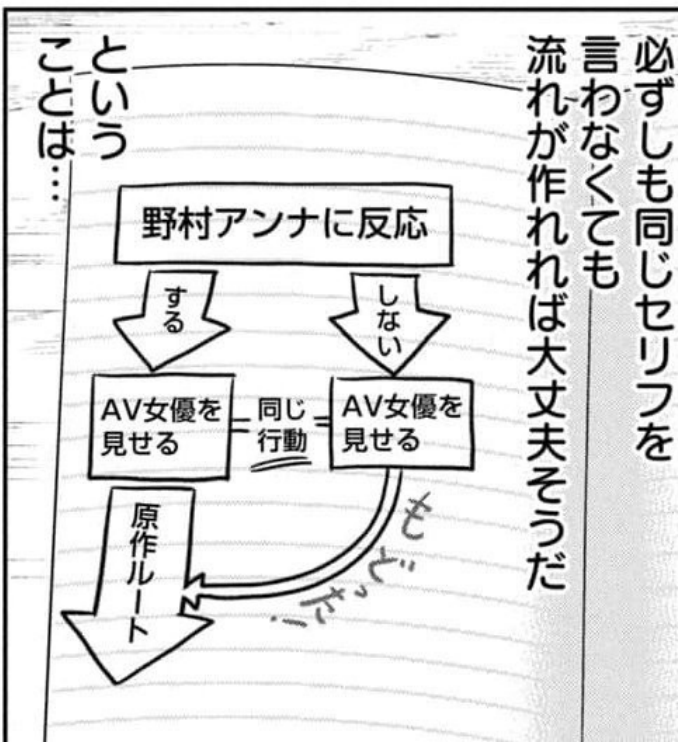 必ずしも同じセリフを
言わなくても
流れが作れれば大丈夫そうだ
という
ことは…
野村アンナに反応
する
しない
AV女優を
見せる
同じ
行動
AV女優を
見せる
原作ルート
もどった!